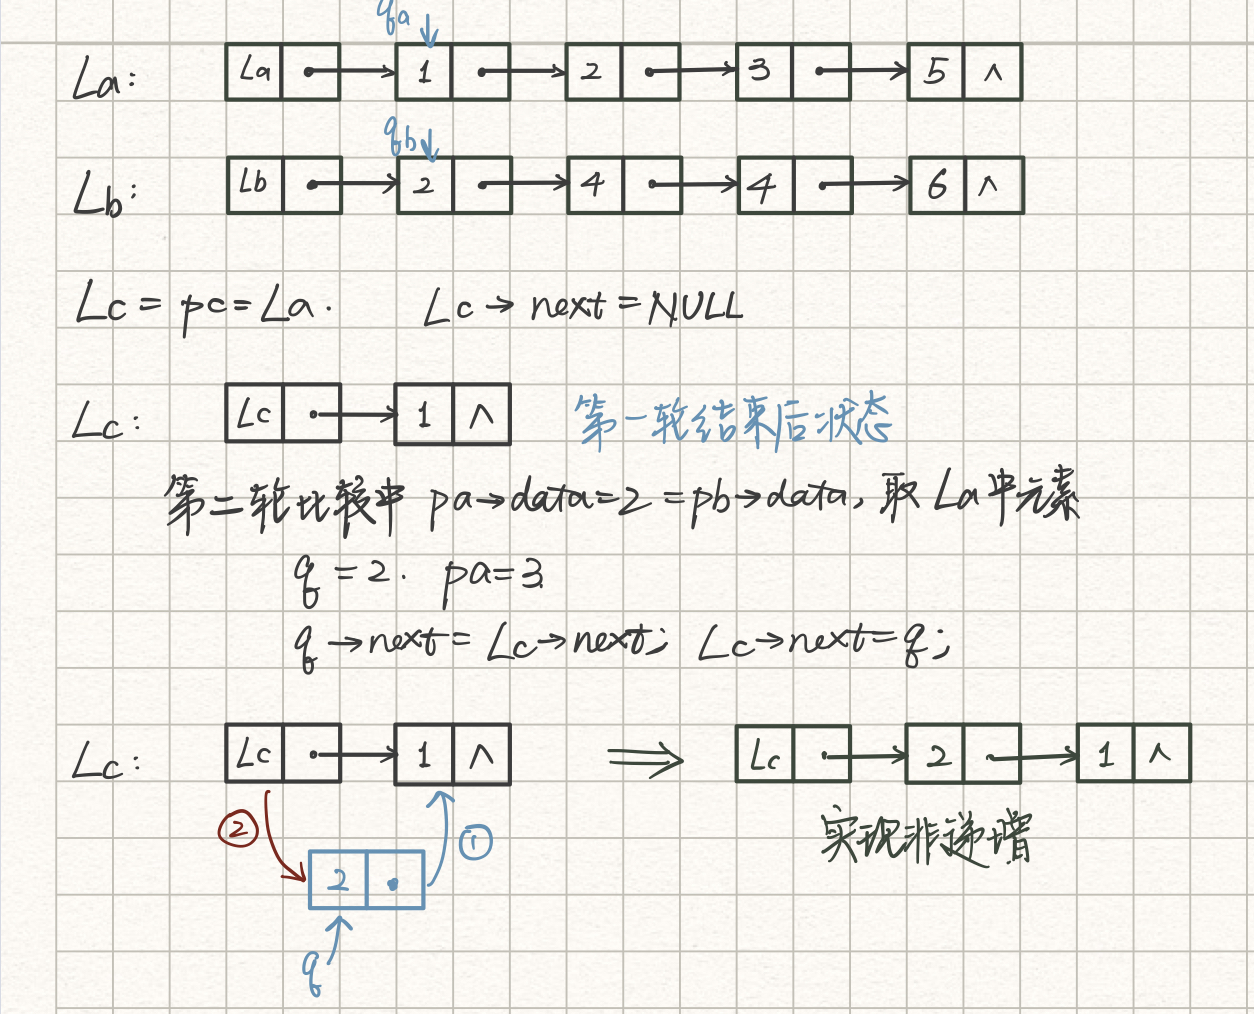 qa
La: La 1 2 3 5 ∧
qb
Lb: Lb 2 4 4 6 ∧
Lc = pc = La. Lc→next = NULL
Lc: Lc 1 ∧ 第一轮结束后状态
第二轮比较中 pa→data=2=pb→data, 取 La中元素
q = 2. pa=3
q→next = Lc→next; Lc→next=q;
Lc: Lc 1 ∧ ⇒ Lc 2 1 ∧
② ① 实现非递增
2
q